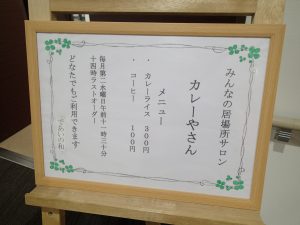 みんなの居場所サロン
カレーやさん
メニュー
・カレーライス 300円
・コーヒー 100円
毎月第二水曜日午前十一時三十分
十四時ラストオーダー
どなたでもご利用できます
であいの和